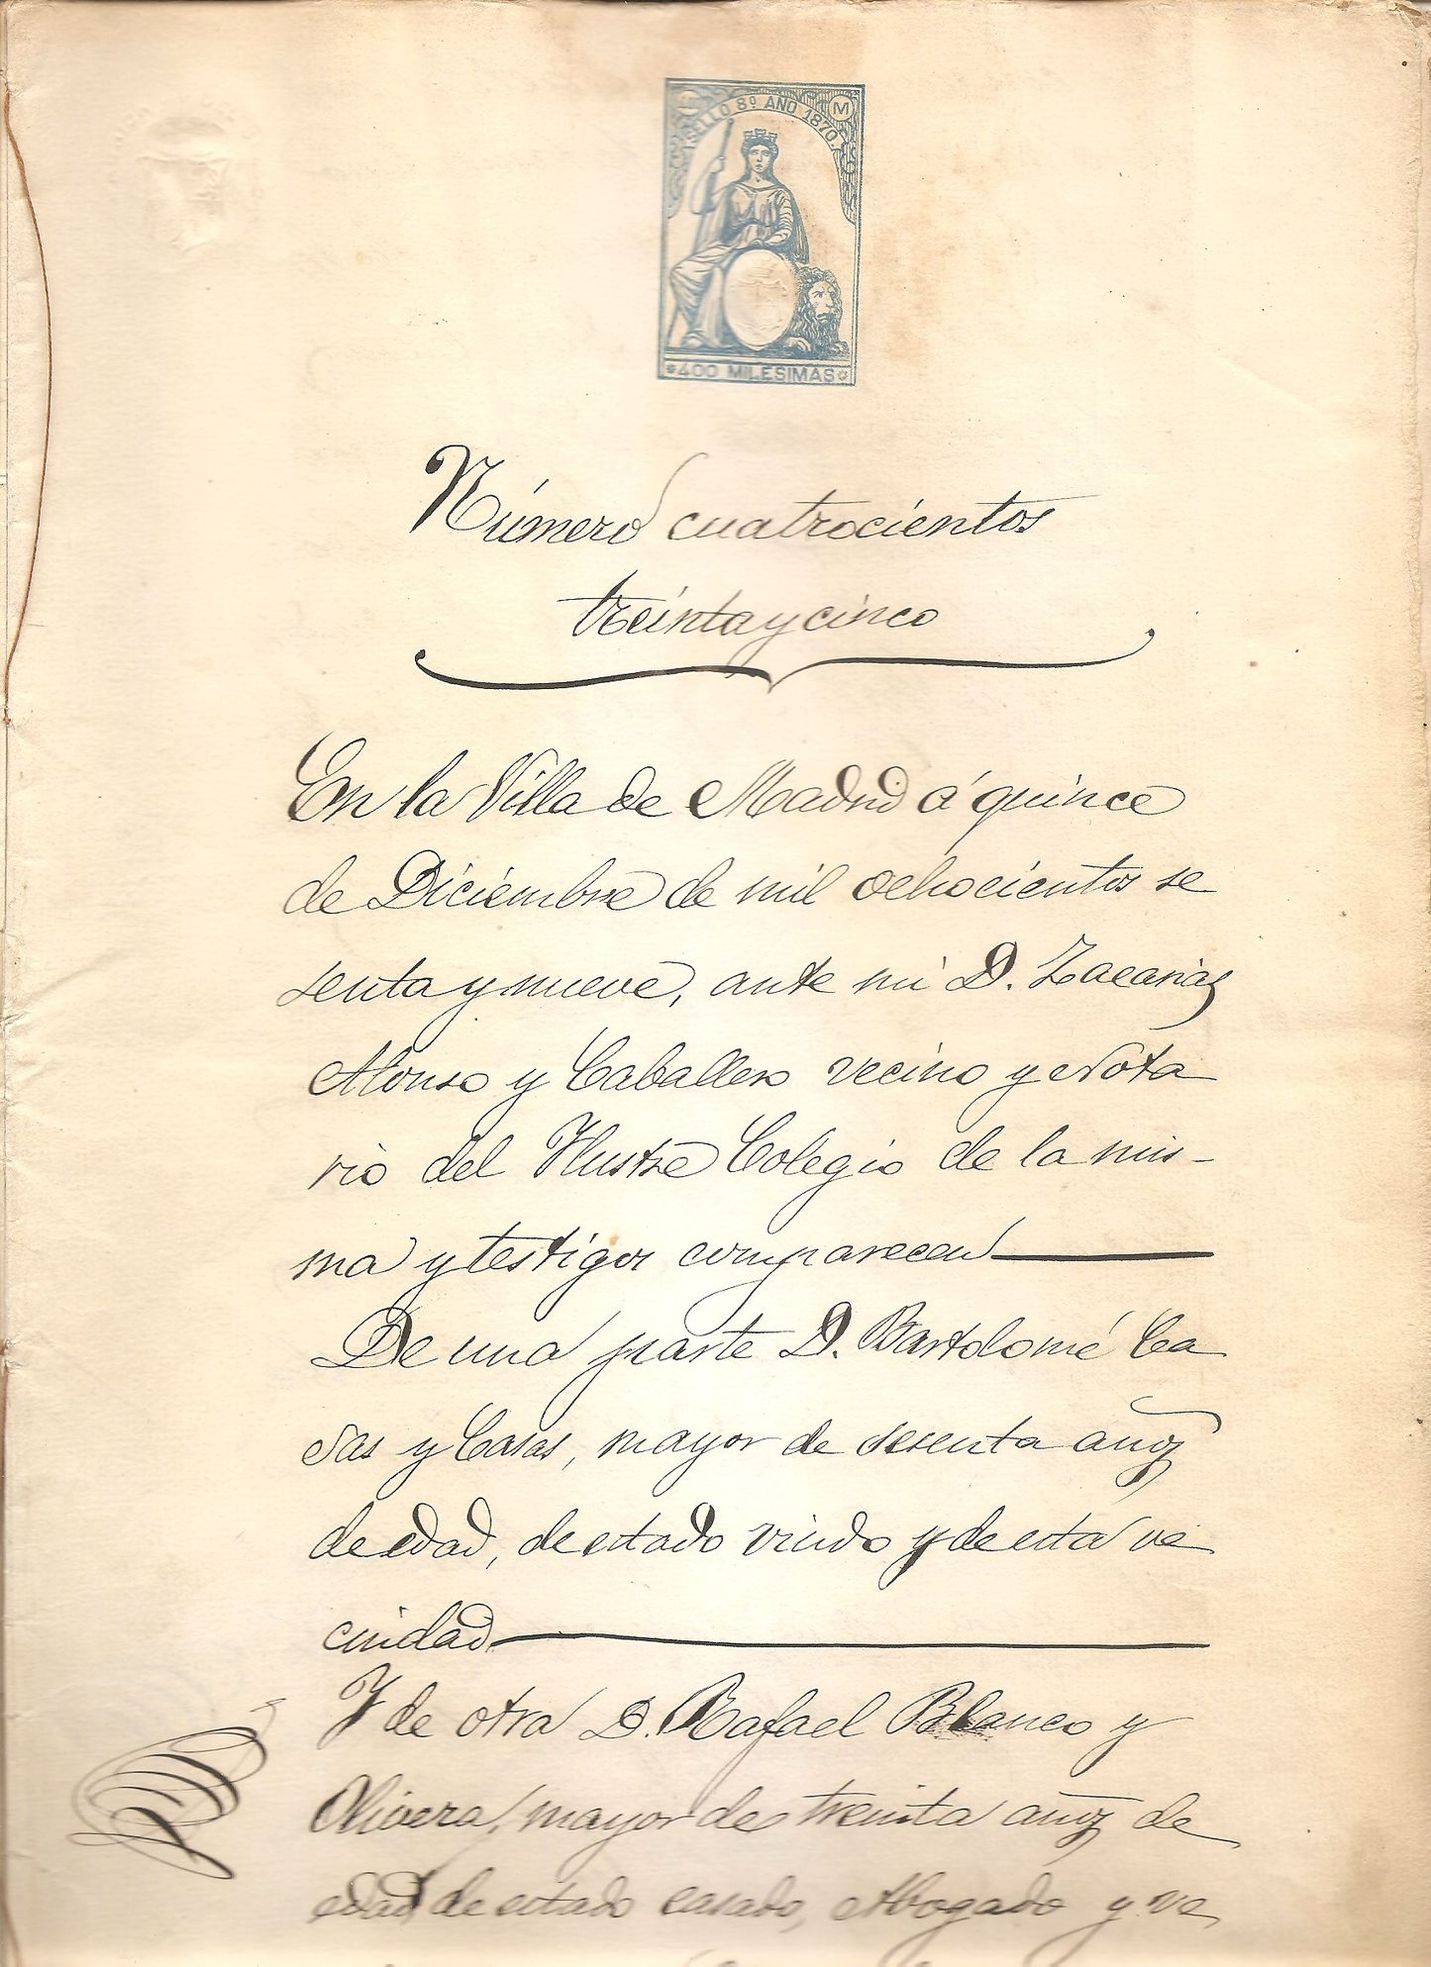 SELLO 8º AÑO 1870.
M
*400 MILESIMAS*
Número cuatrocientos
treinta y cinco
En la Villa de Madrid á quince
de Diciembre de mil ochocientos se
senta y nueve, ante mi D. Zacarias
Alonso y Caballero vecino y Nota
rio del Ilustre Colegio de la mis-
ma y testigos comparecen
De una parte D. Bartolomé Ca
sas y Casas, mayor de sesenta años
de edad, de estado viudo y de esta ve
cindad
Y de otra D. Rafael Blanco y
Olivera, mayor de treinta años de
edad de estado casado, Abogado y ve